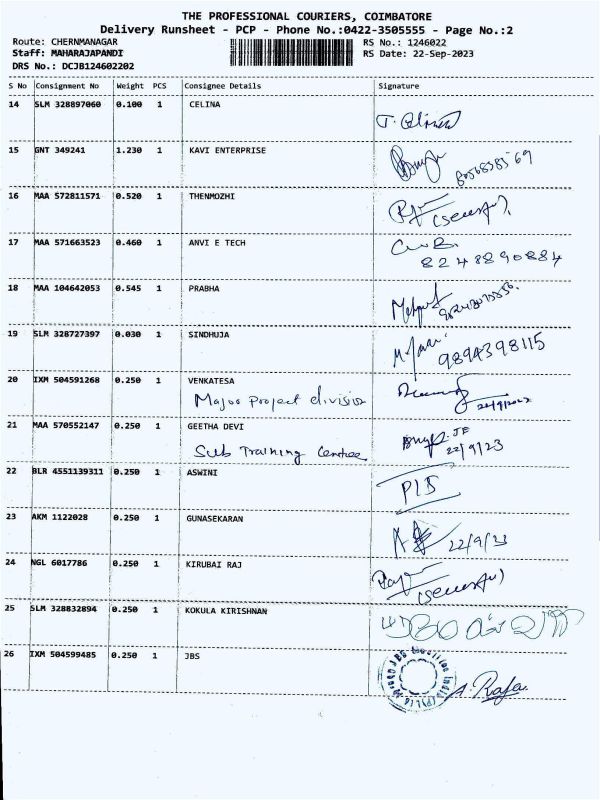 THE PROFESSIONAL COURIERS, COIMBATORE
Delivery Runsheet - PCP - Phone No.:0422-3505555 - Page No.:2
Route: CHERNMANAGAR RS No.: 1246022
Staff: MAHARAJAPANDI RS Date: 22-Sep-2023
DRS No.: DCJB124602202
S No Consignment No Weight PCS Consignee Details Signature
14 SLM 328897060 0.100 1 CELINA
15 GNT 349241 1.230 1 KAVI ENTERPRISE
16 MAA 572811571 0.520 1 THENMOZHI
(Security)
17 MAA 571663523 0.460 1 ANVI E TECH
8248890884
18 MAA 104642053 0.545 1 PRABHA
19 SLM 328727397 0.030 1 SINDHUJA
9894398115
20 IXM 504591268 0.250 1 VENKATESA
Major Project division 22/9/2023
21 MAA 570552147 0.250 1 GEETHA DEVI
Sub Training Centree 22/9/23
22 BLR 4551139311 0.250 1 ASWINI
23 AKM 1122028 0.250 1 GUNASEKARAN
22/9/23
24 NGL 6017786 0.250 1 KIRUBAI RAJ
(Security)
25 SLM 328832894 0.250 1 KOKULA KIRISHNAN
26 IXM 504599485 0.250 1 JBS
A. Raja